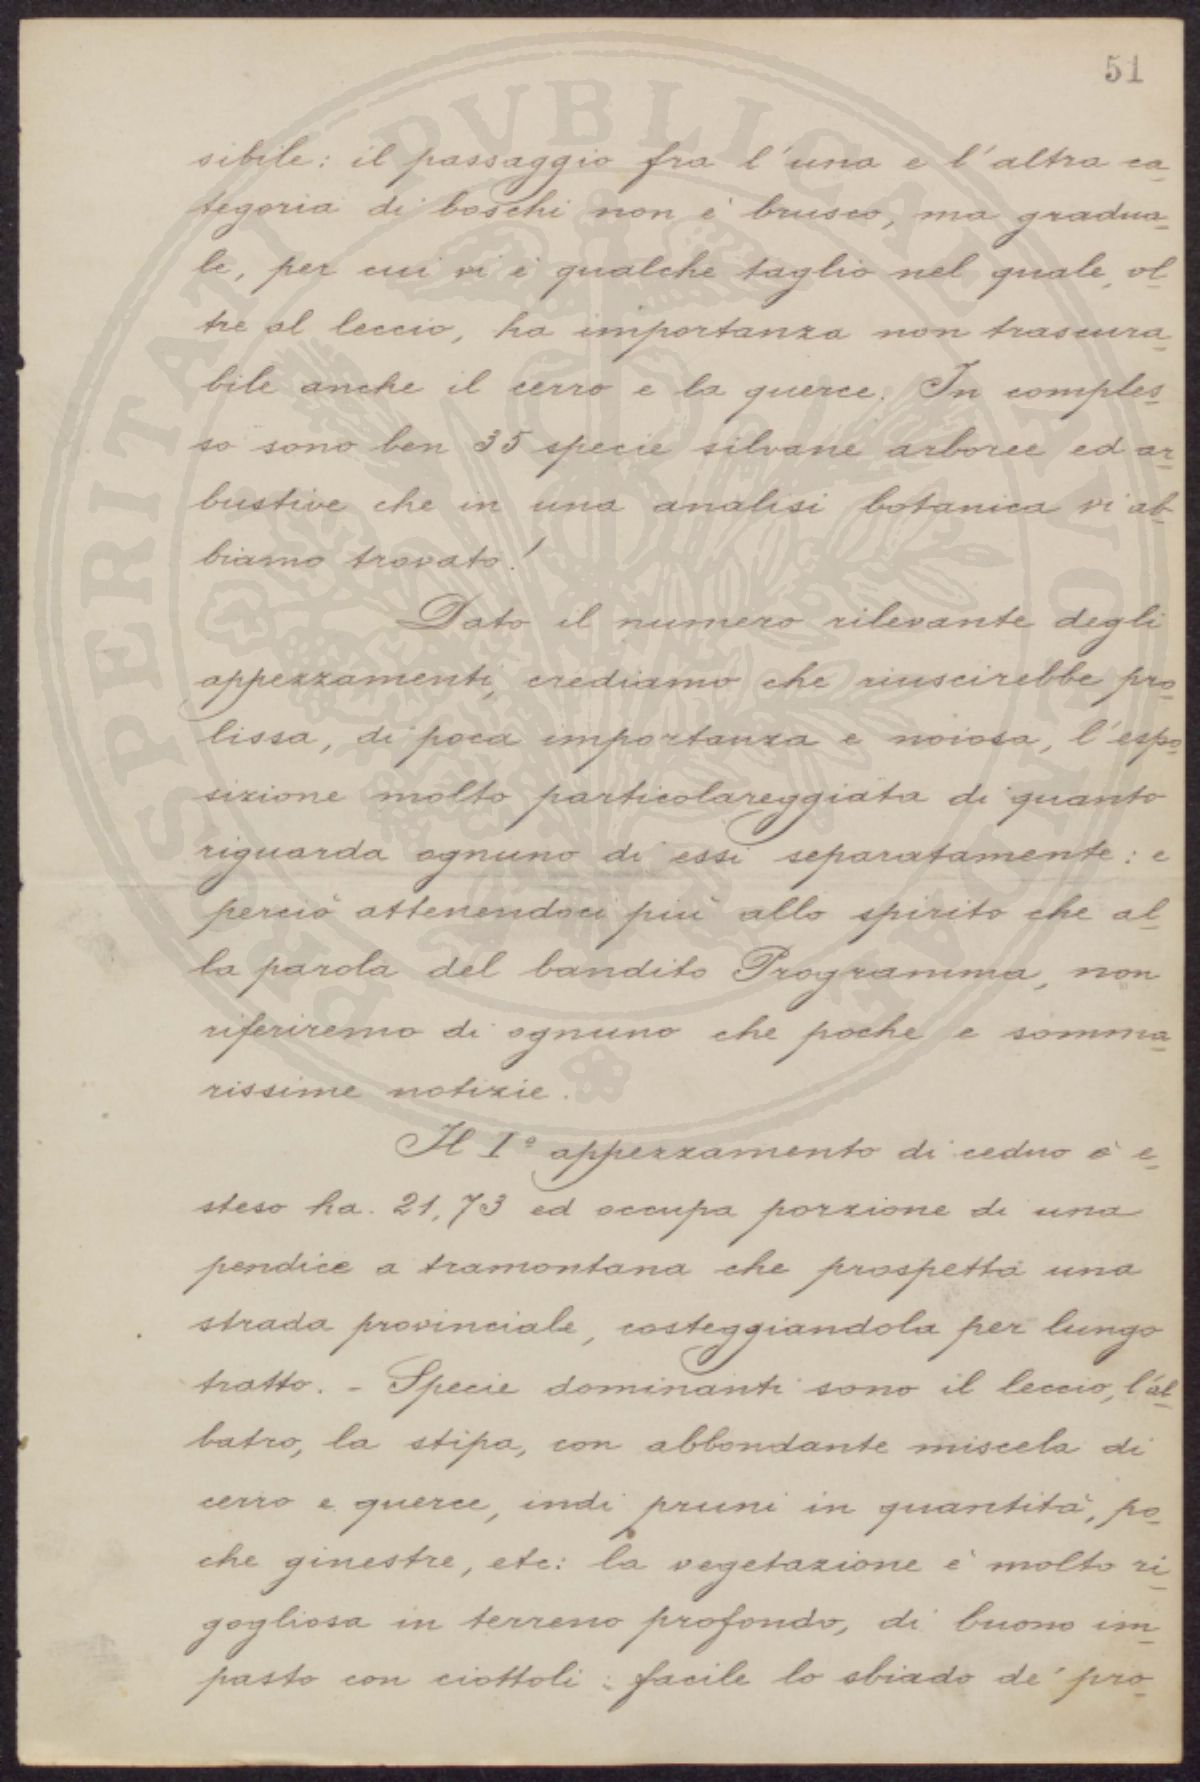 51
sibile: il passaggio fra l'una e l'altra ca-
tegoria di boschi non è brusco, ma gradua-
le, per cui vi è qualche taglio nel quale, ol-
tre al leccio, ha importanza non trascura-
bile anche il cerro e la querce. In comples-
so sono ben 35 specie silvane arboree ed ar-
bustive che in una analisi botanica vi ab-
biamo trovato!
Dato il numero rilevante degli
appezzamenti, crediamo che riuscirebbe pro-
lissa, di poca importanza e noiosa, l'espo-
sizione molto particolareggiata di quanto
riguarda ognuno di essi separatamente: e
perciò attenendoci più allo spirito che al-
la parola del bandito Programma, non
riferiremo di ognuno che poche e somma-
rissime notizie.
Il I° appezzamento di ceduo è e-
steso ha. 21,73 ed occupa porzione di una
pendice a tramontana che prospetta una
strada provinciale, costeggiandola per lungo
tratto. - Specie dominanti sono il leccio, l'al-
batro, la stipa, con abbondante miscela di
cerro e querce, indi pruni in quantità, po-
che ginestre, etc: la vegetazione è molto ri-
gogliosa in terreno profondo, di buono im-
pasto con ciottoli: facile lo sbiado de' pro-
PROSPERITATI PVBLICAE